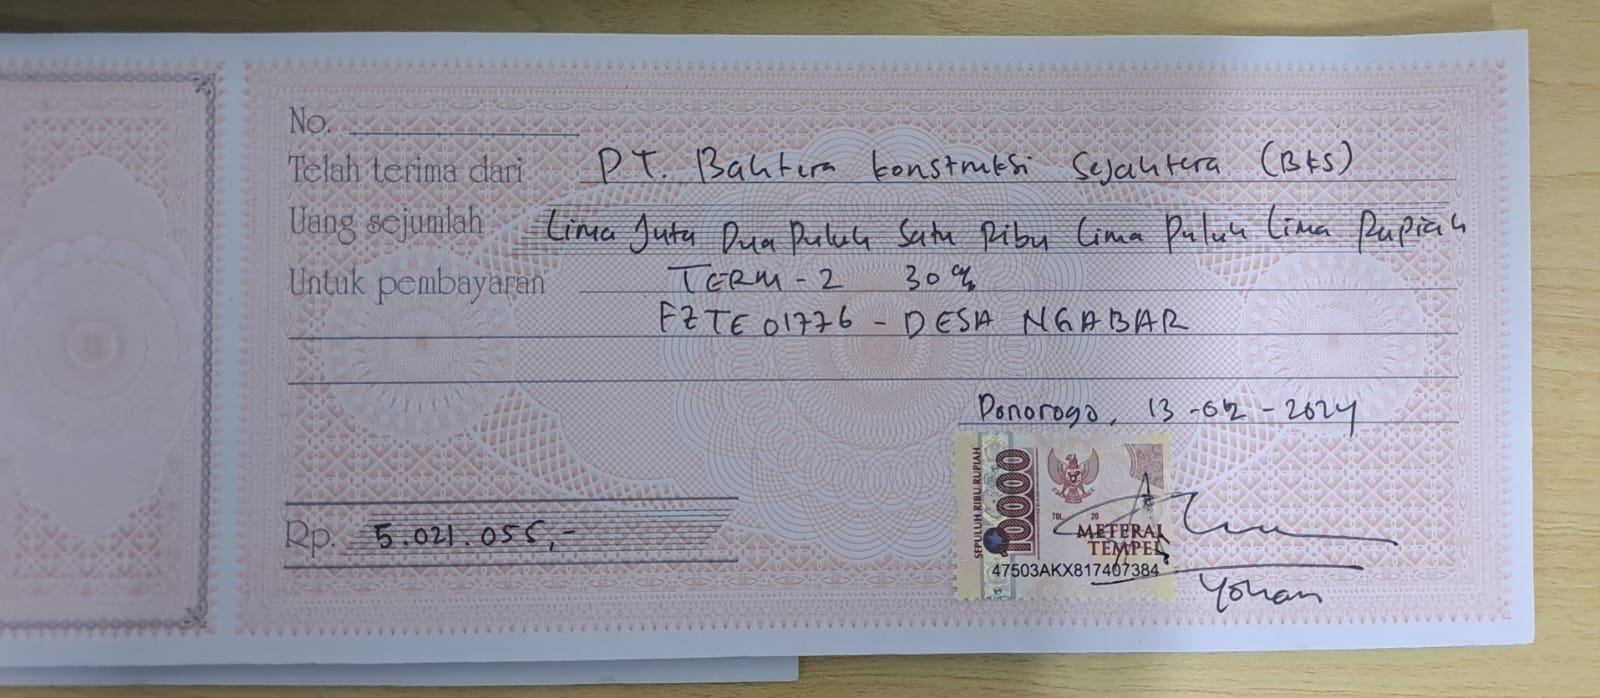 No.
Telah terima dari PT. Bahtera Konstruksi Sejahtera (BKS)
Uang sejumlah Lima Juta Dua Puluh Satu Ribu Lima Puluh Lima Rupiah
Untuk pembayaran TERM-2 30%
EZTE01776 - DESA NGABAR
Ponorogo, 13 - - 2024
Rp. 5.021.055,-
SEPULUH RIBU RUPIAH
10000
TGL. 20
METERAI
TEMPEL
47503AKX817407384
Yohan